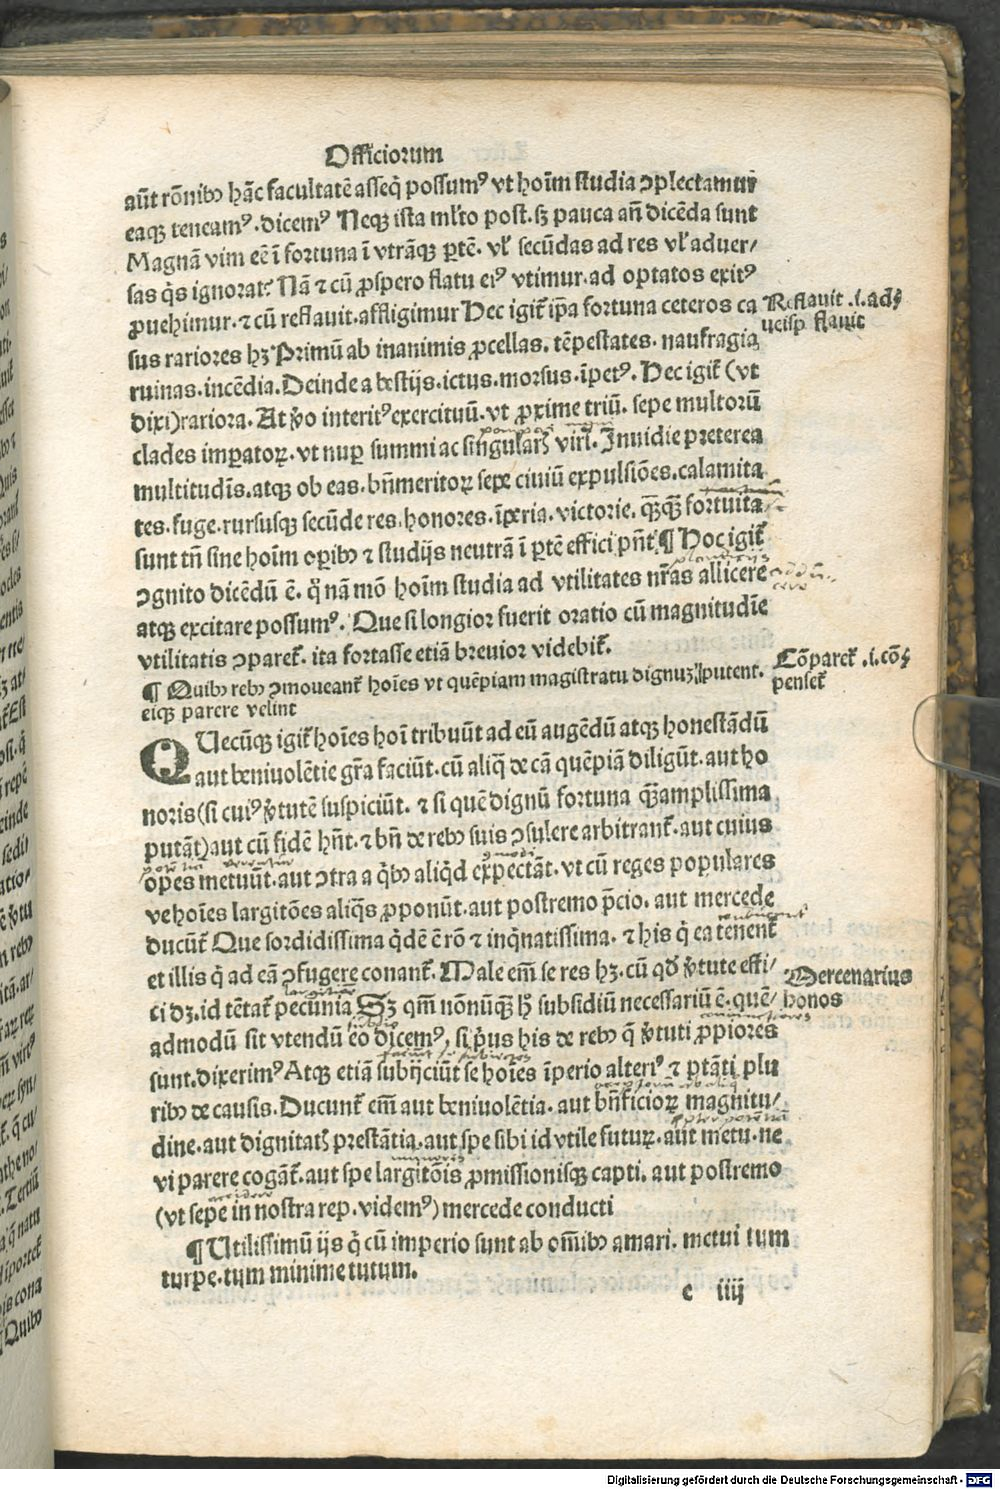 Officiorum
aūt rōnibꝰ hāc facultatē asseq̄ possumꝰ vt hoīm studia ↄplectamur
eaqꝫ teneamꝰ. dicemꝰ Neqꝫ ista ml̓to post. sꝫ pauca añ dicēda sunt
Magnā vim eē ī fortuna ī vtrāqꝫ ꝑtē. vl̓ secūdas ad res vl̓ aduer/
sas q̇s ignorat? Nā ⁊ cū ꝓspero flatu eiꝰ vtimur. ad optatos exitꝰ
ꝓuehimur. ⁊ cū reflauit. affligimur Hec igit̄ ip̄a fortuna ceteros ca
Reflauit .i. ad
flauit
sus rariores hꝫ Primū ab inanimis ꝓcellas. tēpestates. naufragia
ruinas. incēdia. Deinde a bestijs. ictus. morsus. īpetꝰ. Hec igit̄ (vt
dixi) rariora. At v̄o interitꝰ exercituū. vt ꝓxime triū. sepe multorū
clades imꝑatoꝝ. vt nuꝑ summi ac singularꝭ viri. Inuidie preterea
multitudīs. atqꝫ ob eas. bn̄meritoꝝ sepe ciuiū expulsiōes. calamita
tes. fuge. rursusqꝫ secūde res. honores. īperia. victorie. q̄qꝫ fortuita
sunt tn̄ sine hoīm opibꝰ ⁊ studijs neutrā ī ꝑtē effici pn̄t. ¶ Hoc igit̄
ↄgnito dicēdū ē. q̄ nā mō hoīm studia ad vtilitates nr̄as allicere
atqꝫ excitare possumꝰ. Que si longior fuerit oratio cū magnitudīe
vtilitatis ↄparet̄. ita fortasse etiā breuior videbit̄.
Cōparet̄ .i. cō
penset̄
¶ Quibꝰ rebꝰ ↄmoueant̄ hoīes vt quēpiam magistratu dignuꝫ putent.
eiqꝫ parere velint
QUecūqꝫ igit̄ hoīes hoī tribuūt ad eū augēdū atqꝫ honestādū
aut beniuolētie gr̄a faciūt. cū aliq̄ de cā quēpiā diligūt. aut ho
noris (si cuiꝰ v̄tutē suspiciūt. ⁊ si quē dignū fortuna q̄amplissima
putāt) aut cū fidē hn̄t. ⁊ bn̄ de rebꝰ suis ↄsulere arbitrant̄. aut cuius
opes metuūt. aut ↄtra a q̇bꝰ aliq̇d expectāt. vt cū reges populares
ve hoīes largitōes aliq̄s ꝓponūt. aut postremo p̄cio. aut mercede
ducūt̄ Que sordidissima q̇dē ē rō ⁊ inq̇natissima. ⁊ his q̇ ea tenent̄
et illis q̇ ad eā ↄfugere conant̄. Male em̄ se res hꝫ. cū qd̄ v̄tute effi/
Mercenarius
honos
ci dꝫ. id tētat̄ pecunia Sꝫ qm̄ nōnūq̄ꝫ h̄ subsidiū necessariū ē. quē/
admodū sit vtendū eo dicemꝰ, si pͥus his de rebꝰ q̄ v̄tuti ꝓpiores
sunt. dixerimꝰ Atqꝫ etiā subijciūt se hoīes īperio alteriꝰ ⁊ ptāti plu
ribꝰ de causis. Ducunt̄ em̄ aut beniuolētia. aut bn̄ficioꝝ magnitu/
dine. aut dignitatꝭ prestātia. aut spe sibi id vtile futuꝝ. aut metu. ne
vi parere cogāt̄. aut spe largitōis ꝓmissionisqꝫ capti. aut postremo
(vt sepe in nostra rep. videmꝰ) mercede conducti
¶ Utilissimū ijs q̇ cū imperio sunt ab om̄ibꝰ amari. metui tum
turpe. tum minime tutum.
c iiij
Digitalisierung gefördert durch die Deutsche Forschungsgemeinschaft - DFG